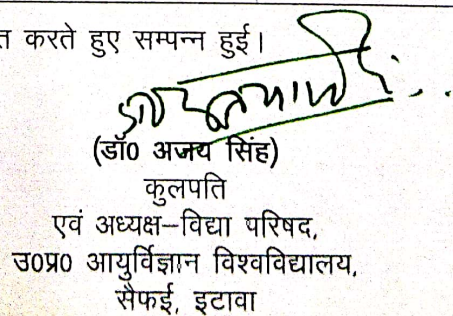 त करते हुए सम्पन्न हुई।
(डॉ0 अजय सिंह)
कुलपति
एवं अध्यक्ष–विद्या परिषद,
उ0प्र0 आयुर्विज्ञान विश्वविद्यालय,
सैफई, इटावा